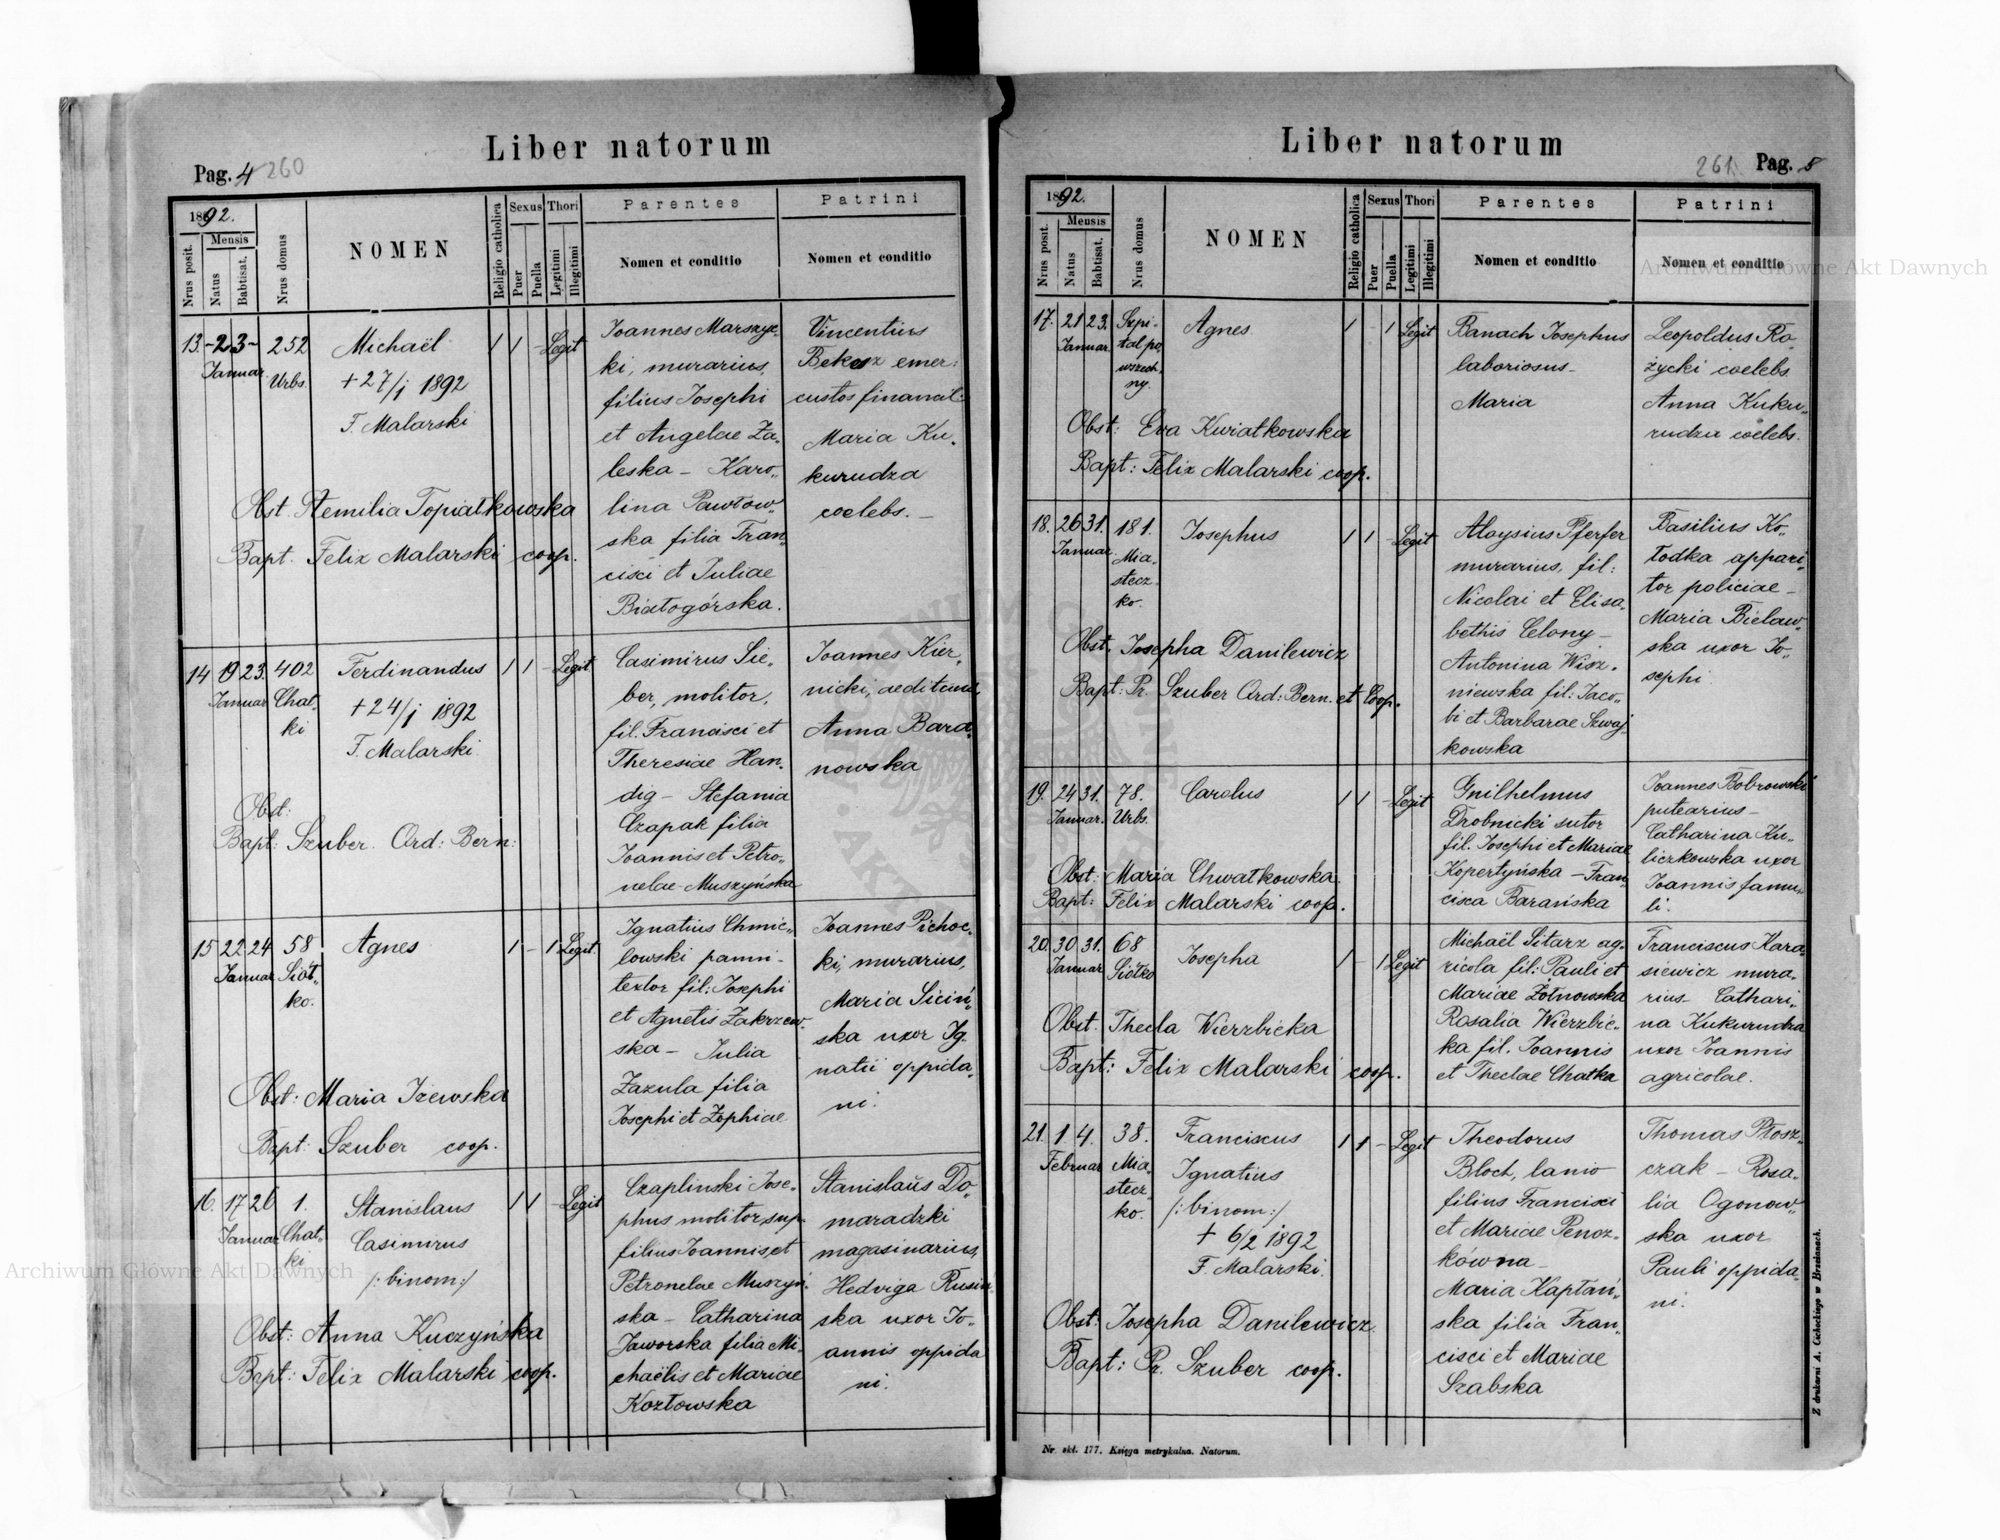 Liber natorum
Pag. 4 260
1892.
Nrus posit.
Mensis
Natus
Babtisat.
Nrus domus
NOMEN
Religio catholica
Sexus
Puer
Puella
Thori
Legitimi
Illegitimi
Parentes
Nomen et conditio
Patrini
Nomen et conditio
13. -23- 252 Michaël 1 1 - Legit
Januar. Urbs.
+ 27/1 1892
F. Malarski
Obst. Aemilia Topiatkowska
Bapt. Felix Malarski coop.
Joannes Marszyc-
ki, murarius,
filius Josephi
et Angelae Za-
leska - Karo-
lina Pawłow-
ska filia Fran-
cisci et Juliae
Białogórska.
Vincentius
Bekesz emer:
custos financial:
Maria Ku-
kurudza
coelebs. -
14 19 23. 402 Ferdinandus 1 1 - Legit
Januar Chat-
ki
+ 24/1 1892
F. Malarski
Obst:
Bapt: Szuber. Ord: Bern:
Casimirus Sie-
ber, molitor,
fil. Francisci et
Theresiae Han-
dig - Stefania
Czapak filia
Joannis et Petro-
nelae Muszyńska
Joannes Kier-
nicki, aedituus,
Anna Bara-
nowska
15 22 24 58 Agnes 1 - 1 Legit.
Januar Siół-
ko.
Obst: Maria Izewska
Bapt: Szuber coop.
Ignatius Chmie-
lowski panni-
textor fil: Josephi
et Agnetis Zakrzew-
ska - Julia
Zazula filia
Josephi et Zophiae
Joannes Pichoc-
ki, murarius,
Maria Siciń-
ska uxor Ig-
natii oppida-
ni.
16. 17 26 1. Stanislaus 1 1 - Legit
Januar Chat-
ki
Casimirus
/: binom :/
Obst: Anna Kuczyńska
Bapt: Felix Malarski coop.
Czaplinski Jose-
phus molitor, sup.
filius Joannis et
Petronelae Muszyń-
ska - Catharina
Jaworska filia Mi-
chaëlis et Mariae
Kozłowska
Stanislaus Do-
maradzki
magasinarius,
Hedviga Rusiń-
ska uxor Jo-
annis oppida
ni.
Liber natorum
261. Pag. 5
1892.
Nrus posit.
Mensis
Natus
Babtisat.
Nrus domus
NOMEN
Religio catholica
Sexus
Puer
Puella
Thori
Legitimi
Illegitimi
Parentes
Nomen et conditio
Patrini
Nomen et conditio
17. 21 23. Szpi- Agnes 1 - 1 Legit
Januar tal po
wszech-
ny.
Obst: Eva Kwiatkowska
Bapt: Felix Malarski coop.
Banach Josephus
laboriosus -
Maria
Leopoldus Ro-
życki coelebs.
Anna Kuku-
rudza coelebs.
18. 26 31. 181. Josephus 1 1 - Legit
Januar. Mia-
stecz-
ko.
Obst. Josepha Danilewicz
Bapt: Pr. Szuber Ord: Bern. et Coop.
Aloysius Pferfer
murarius, fil:
Nicolai et Elisa-
bethis Celony -
Antonina Wisz-
niewska fil: Jaco-
bi et Barbarae Szwaj-
kowska
Basilius Ko-
łodka appari-
tor policiae -
Maria Bielaw-
ska uxor Jo-
sephi.
19. 24 31. 78. Carolus 1 1 - Legit
Januar. Urbs.
Obst: Maria Chwatkowska.
Bapt: Felix Malarski coop.
Guilhelmus
Drobnicki sutor
fil. Josephi et Mariae
Kopertyńska - Fran-
cisca Barańska
Joannes Bobrowski
putearius -
Catharina Ku-
liczkowska uxor
Joannis famu-
li.
20. 30 31. 68 Josepha 1 - 1 Legit
Januar Siółko
Obst. Thecla Wierzbicka
Bapt: Felix Malarski coop.
Michaël Sitarz ag-
ricola fil: Pauli et
Mariae Żołnowska
Rosalia Wierzbic-
ka fil. Joannis
et Theclae Chatka
Franciscus Kara-
siewicz mura-
rius - Cathari-
na Kukurudza
uxor Joannis
agricolae.
21. 1 4. 38. Franciscus 1 1 - Legit
Februar Mia-
stecz-
ko.
Ignatius
/: binom :/
+ 6/2 1892
F. Malarski.
Obst: Josepha Danilewicz.
Bapt: Pr. Szuber coop.
Theodorus
Bloch, lanio
filius Francisci
et Mariae Penoz-
kówna -
Maria Kapłań-
ska filia Fran-
cisci et Mariae
Szabska
Thomas Płosz-
czak - Rosa-
lia Ogonow-
ska uxor
Pauli oppida-
ni.
Nr. skł. 177. Księga metrykalna. Natorum.
Z drukarni A. Cichockiego w Brzeżanach.
Archiwum Główne Akt Dawnych
Archiwum Główne Akt Dawnych